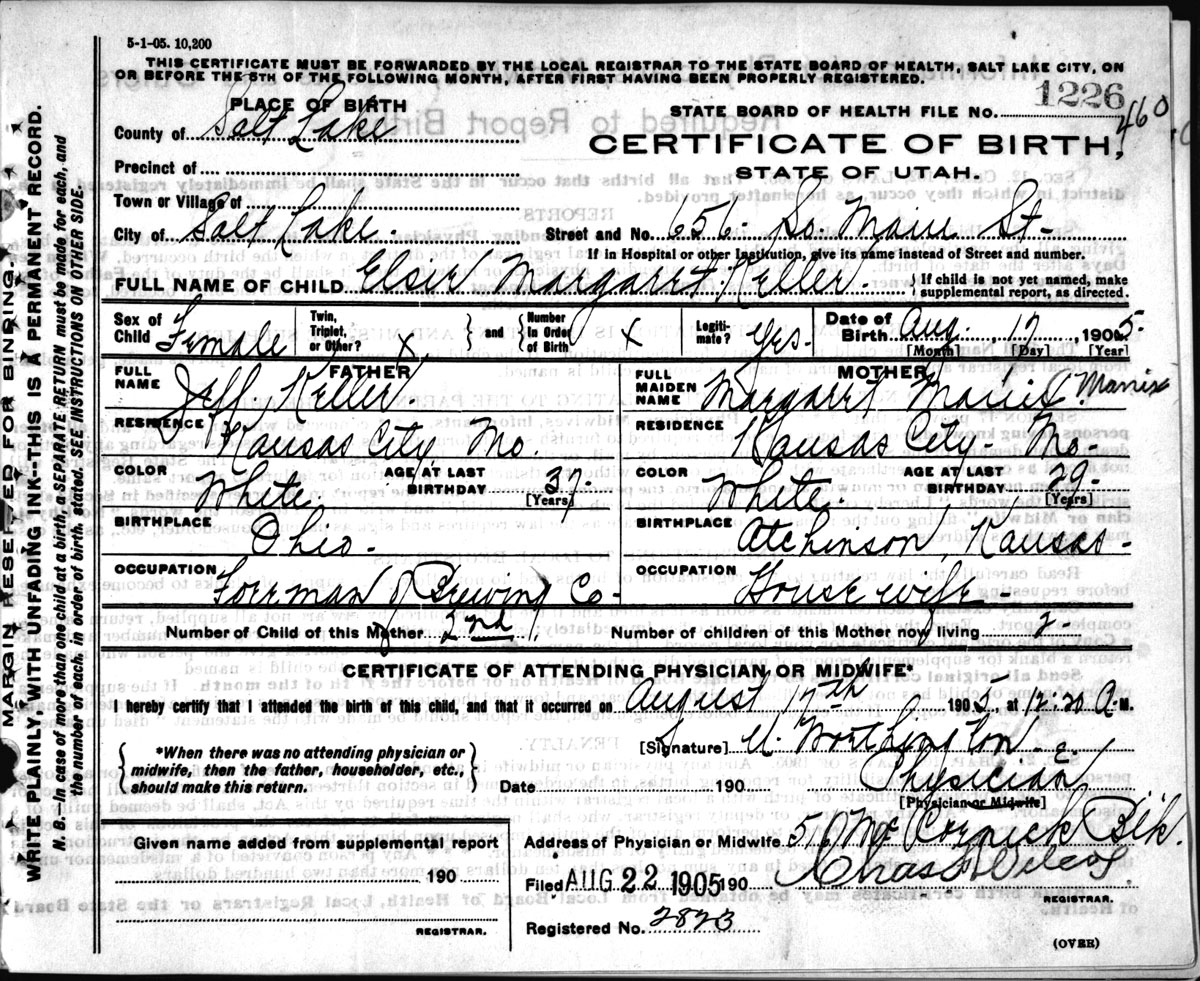 5-1-05. 10,200
THIS CERTIFICATE MUST BE FORWARDED BY THE LOCAL REGISTRAR TO THE STATE BOARD OF HEALTH, SALT LAKE CITY, ON
OR BEFORE THE 5TH OF THE FOLLOWING MONTH, AFTER FIRST HAVING BEEN PROPERLY REGISTERED.
PLACE OF BIRTH
STATE BOARD OF HEALTH FILE NO. 1226 460
County of Salt Lake
CERTIFICATE OF BIRTH,
Precinct of
STATE OF UTAH.
Town or Village of
City of Salt Lake. Street and No. 656 So. Main St-
If in Hospital or other Institution, give its name instead of Street and number.
FULL NAME OF CHILD Elsie Margaret Keller. If child is not yet named, make supplemental report, as directed.
Sex of Child Female Twin, Triplet, or Other? x and Number in Order of Birth x Legitimate? Yes. Date of Birth Aug. 17 1905.
[Month] [Day] [Year]
FATHER
FULL NAME Jeff Keller
RESIDENCE Kansas City Mo.
COLOR White. AGE AT LAST BIRTHDAY 37. [Years]
BIRTHPLACE Ohio.
OCCUPATION Forman of Brewing Co-
MOTHER
FULL MAIDEN NAME Margaret Mannix
RESIDENCE Kansas City Mo-
COLOR White. AGE AT LAST BIRTHDAY 29. [Years]
BIRTHPLACE Atchinson, Kansas-
OCCUPATION House wife-
Number of Child of this Mother 2nd Number of children of this Mother now living 2-
CERTIFICATE OF ATTENDING PHYSICIAN OR MIDWIFE*
I hereby certify that I attended the birth of this child, and that it occurred on August 17th 1905, at 12.20 A. M.
*When there was no attending physician or midwife, then the father, householder, etc., should make this return.
[Signature] U. Worthington
Date 190 Physician
[Physician or Midwife]
Given name added from supplemental report
190
REGISTRAR.
Address of Physician or Midwife 51 Mc Cornick Blk.
Filed AUG 22 1905 190
REGISTRAR.
Registered No. 2823
(OVER)
MARGIN RESERVED FOR BINDING.
WRITE PLAINLY, WITH UNFADING INK--THIS IS A PERMANENT RECORD.
N. B.--In case of more than one child at a birth, a SEPARATE RETURN must be made for each, and
the number of each, in order of birth, stated. SEE INSTRUCTIONS ON OTHER SIDE.